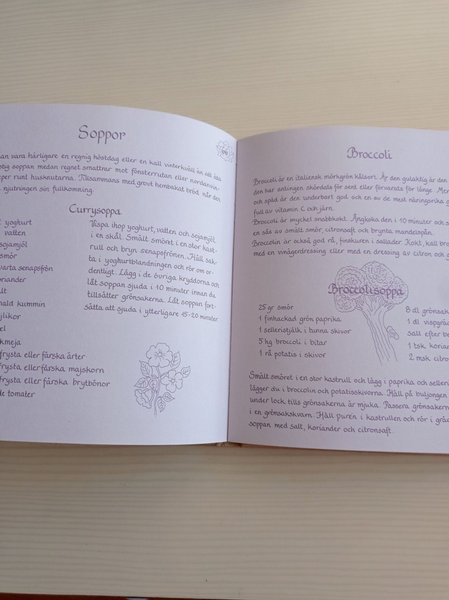 Soppor
an vara härligare en regnig höstdag eller en kall vinterkväll än att äta
soppan medan regnet smattrar mot fönsterrutan eller nordanvin-
per runt husknutarna. Tillsammans med grovt hembakat bröd, när den
njutningen sin fullkomning.
Currysoppa
yoghurt
vatten
sojamjöl
smör
svarta senapsfrön
oriander
salt
nald kummin
ejlikor
el
kmeja
frysta eller färska ärter
frysta eller färska majskorn
frysta eller färska brytbönor
de tomater
Vispa ihop yoghurt, vatten och sojamjöl
i en skål. Smält smöret i en stor kast-
rull och bryn senapsfrönen. Häll sak-
ta i yoghurtblandningen och rör om or-
dentligt. Lägg i de övriga kryddorna och
låt soppan sjuda i 10 minuter innan du
tillsätter grönsakerna. Låt soppan fort-
sätta att sjuda i ytterligare 15-20 minuter
Broccoli
Broccoli är en italiensk mörkgrön kålsort. Är den gulaktig är den
har den antingen skördats för sent eller förvarats för länge. Men
och späd är den underbart god och en av de mest näringsrika g
full av vitamin C och järn.
Broccoli är mycket snabbkokt. Ångkoka den i 10 minuter och s
en sås av smält smör, citronsaft och brynta mandelspån.
Broccolin är också god rå, finskuren i sallader. Kokt, kall bro
med en vinägerdressing eller med en dressing av citron och g
Broccolisoppa
25 gr smör
1 finhackad grön paprika
1 selleristjälk i tunna skivor
5 hg broccoli i bitar
1 rå potatis i skivor
8 dl grönsa
1 dl vispgräd
salt efter be
1 tsk kori
2 msk citro
Smält smöret i en stor kastrull och lägg i paprika och seller
lägger du i broccolin och potatisskivorna. Häll på buljongen
under lock tills grönsakerna är mjuka. Passera grönsaker
i en grönsakskvarn. Häll purén i kastrullen och rör i grä
soppan med salt, koriander och citronsaft.